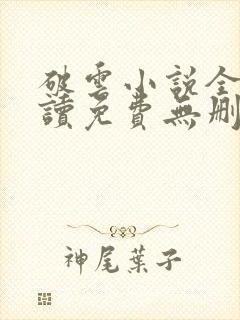 破雲小説全
讀免費無刪
神尾葉子